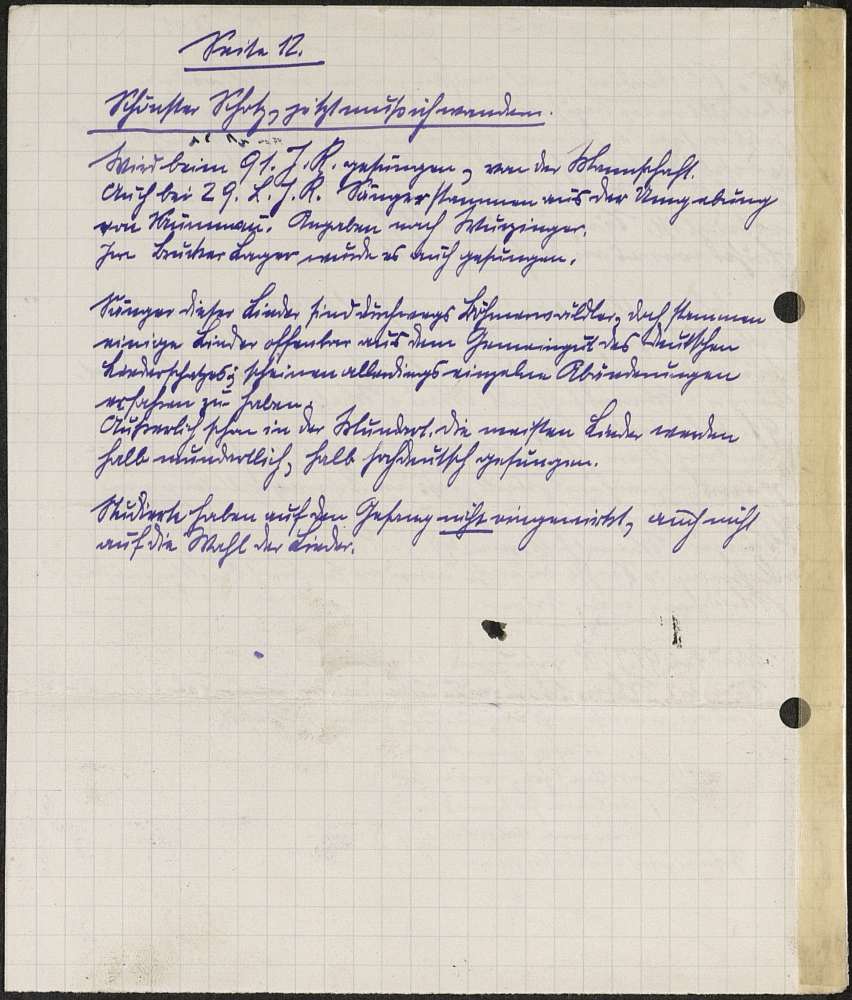 Seite 12.
Schönster Schatz, jetzt muß ich wandern.
Wird beim 91. J. R. gesungen, von der Mannschaft.
Auch bei 29. L. J. R. Sänger stammen aus der Umgebung
von Krummau. Angaben nach Wurzinger.
Im Brucker Lager wurde es auch gesungen.
Sänger dieser Lieder sind durchwegs Böhmerwäldler, doch stammen
einige Lieder offenbar aus dem Gemeingut des deutschen
Liederschatzes; scheinen allerdings einzelne Abänderungen
erfahren zu haben.
Äußerlich schon in der Mundart. Die meisten Lieder werden
halb mundartlich, halb hochdeutsch gesungen.
Studierte haben auf den Gesang nicht eingewirkt, auch nicht
auf die Wahl der Lieder.